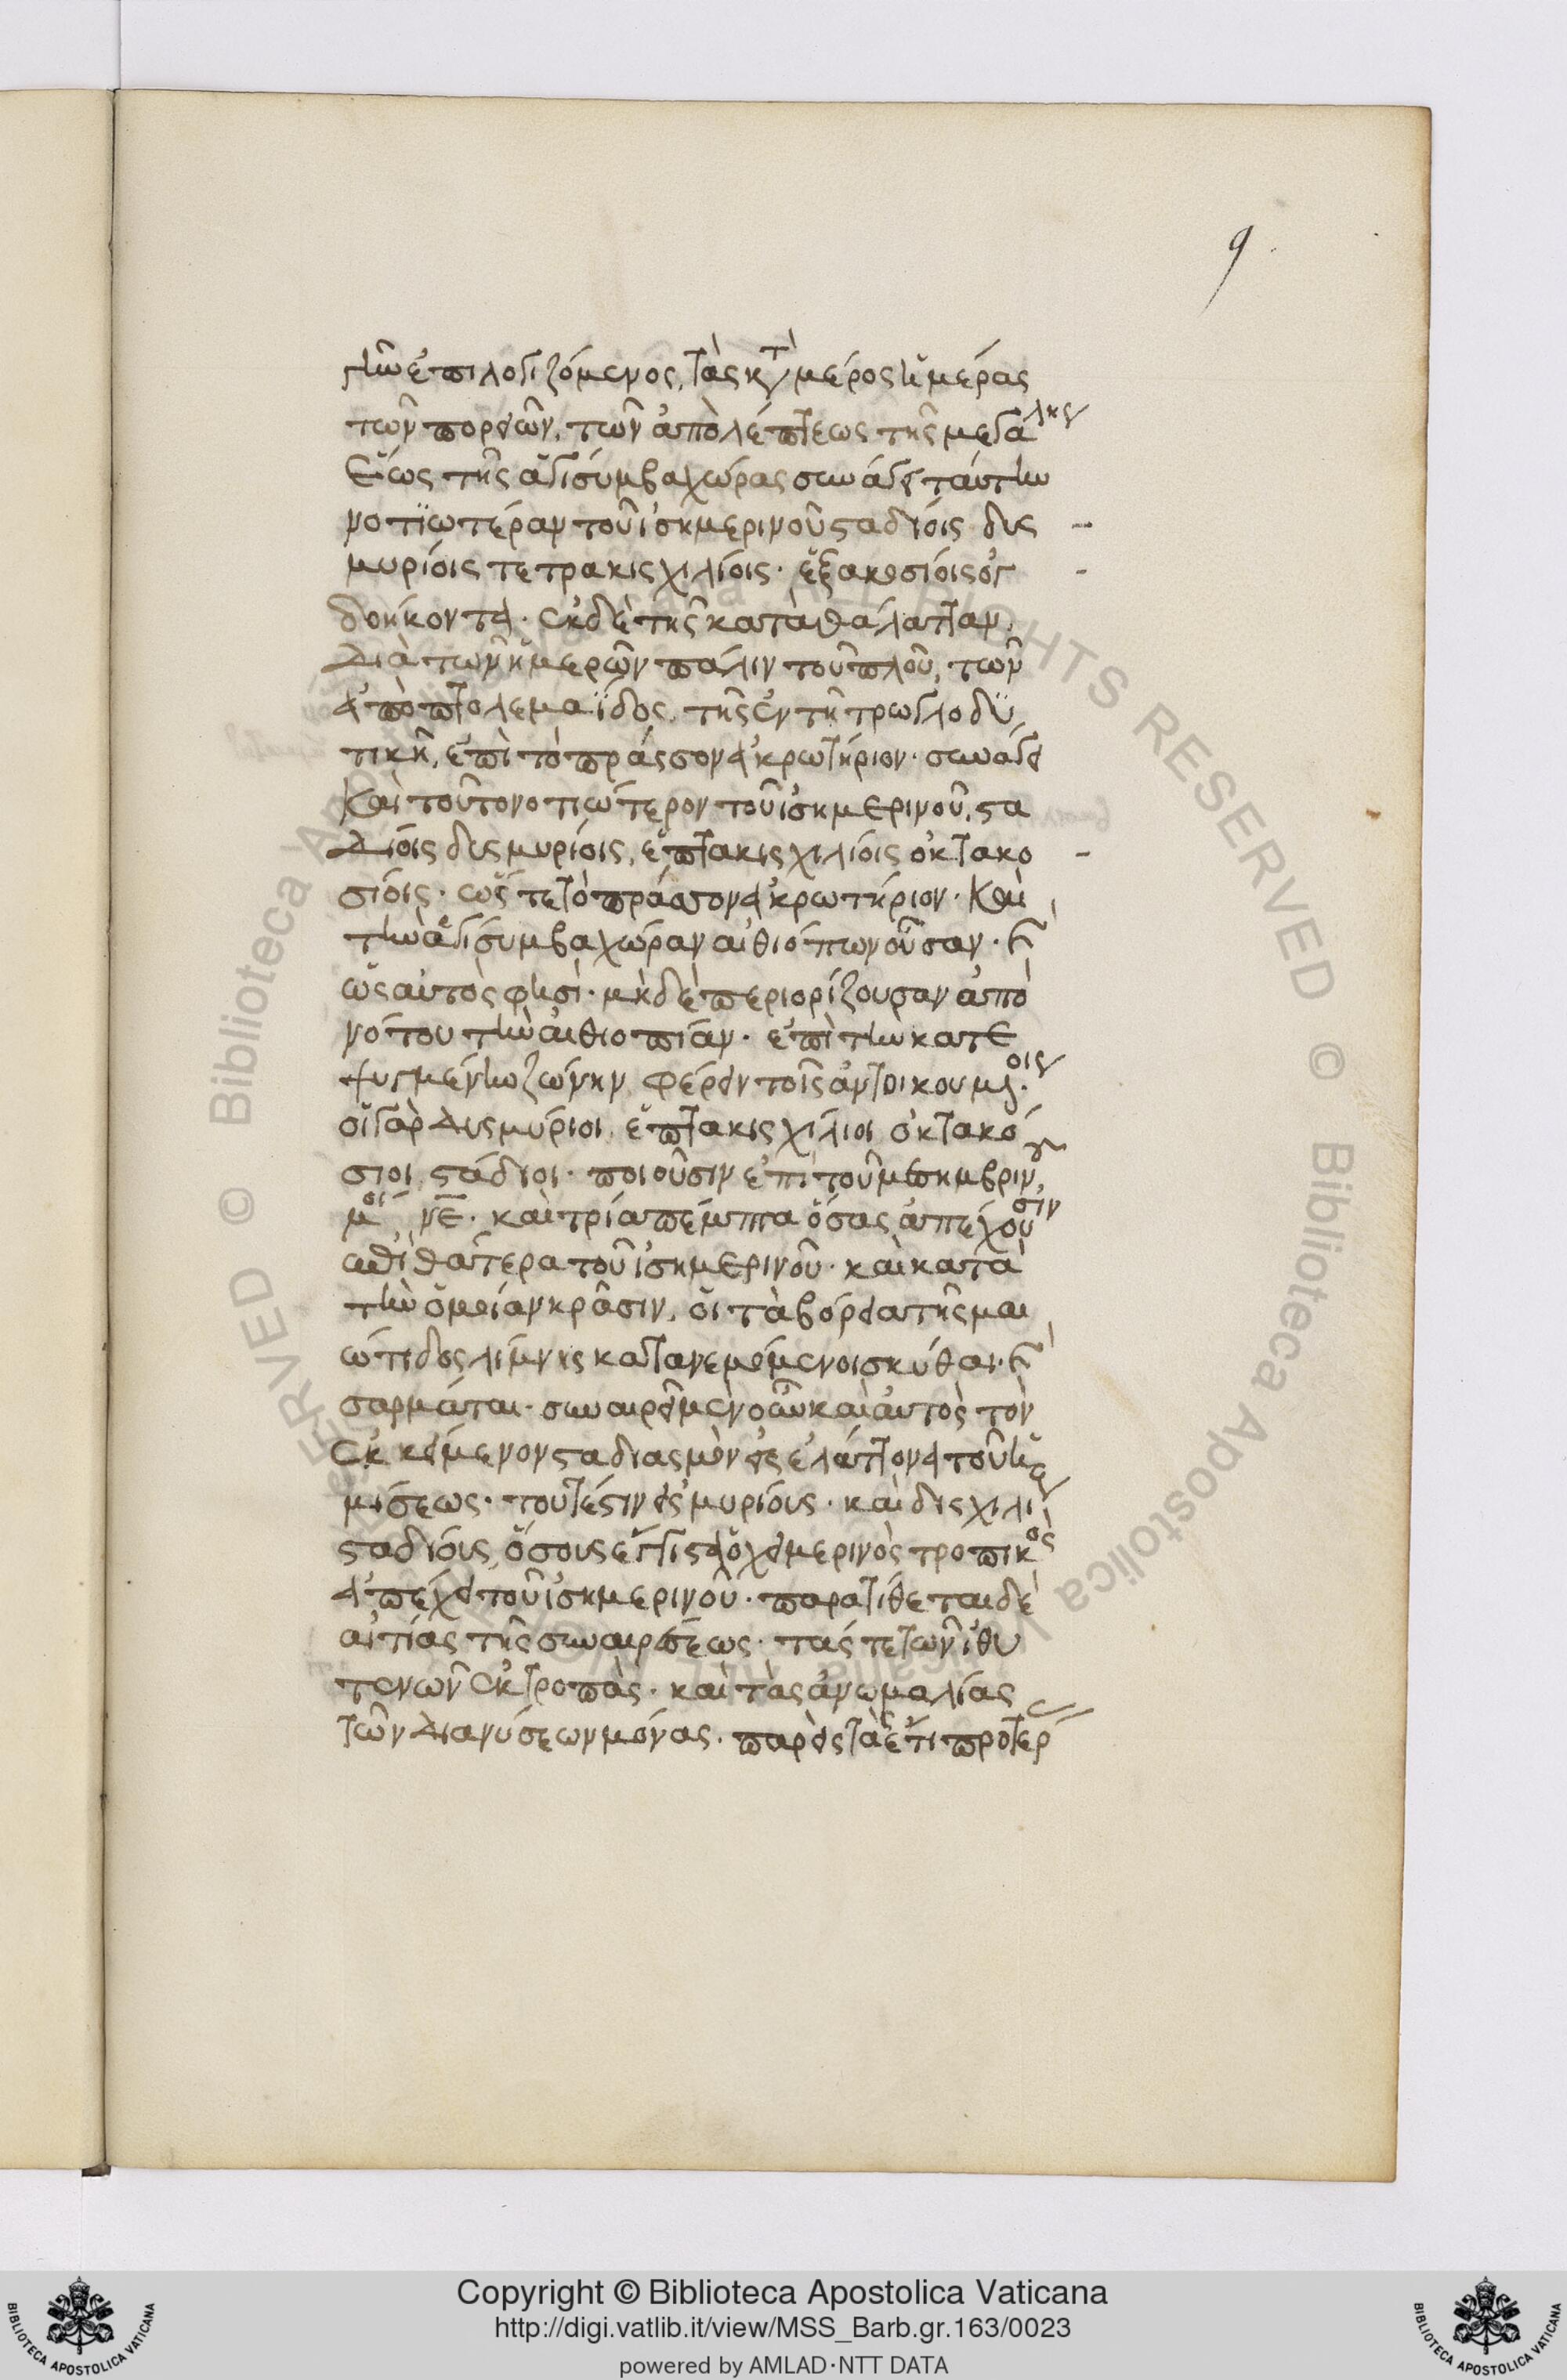 9
γῆν ἐπιλογιζόμενος, τὰς κατὰ μέρος ἡμέρας
τῶν πορειῶν, τῶν ἀπὸ λέπτεως τῆς μεγάλης
ἕως τῆς ἀγίσυμβα χώρας συνάγει ταύτην
νοτϊωτέραν τοῦ ἰσημερινοῦ σταδίοις δις
μυρίοις τετρακισχιλίοις· ἑξακοσίοις ὀγ
δοήκοντα· ἐκ δὲ τῆς κατὰ θάλατταν,
διὰ τῶν ἡμερῶν πάλιν τοῦ πλοῦ, τῶν
ἀπὸ πτολεμαΐδος, τῆς ἐν τῆ τρωγλοδϋ
τικῆ, ἐπὶ τὸ πράσσον ἀκρωτήριον· συνάγει
καὶ τοῦτο νοτιώτερον τοῦ ἰσημερινοῦ, στα
δίοις δισμυρίοις, ἑπτακισχιλίοις ὀκτακο
σίοις· ὥστε τὸ πράσσον ἀκρωτήριον· καὶ
τὴν ἀγίσυμβα χώραν αἰθιόπων οὖσαν· καὶ
ὡς αὐτός φησι· μηδὲ περιορίζουσαν ἀπὸ
νότου τὴν αἰθιοπίαν· ἐπὶ τὴν κατε
ψυγμένην ζώνην φέρειν τοῖς ἀντοικουμένοις·
οἱ γὰρ δισμύριοι ἑπτακισχίλιοι ὀκτακό
σιοι στάδιοι· ποιοῦσιν ἐπὶ τοῦ μεσημβρινοῦ
μοί νε· καὶ τρία πέμπτα ὅσας ἀπέχουσιν
ἐπὶ θάτερα τοῦ ἰσημερινοῦ· καὶ κατὰ
τὴν ὁμοίαν κρᾶσιν, οἱ τὰ βόρεια τῆς μαι
ώτιδος λίμνης κατανεμόμενοι σκύθαι· καὶ
σαρμάται· συναιρεῖ μὲν οὖν καὶ αὐτὸς τὸν
ἐκκείμενον σταδιασμὸν εἰς ἐλάττονα τοῦ ἡ
μίσεως· τουτέστιν εἰς μυρίους· καὶ δισχιλίους
σταδίους ὅσους ἔγγιστα ὁ χειμερινὸς τροπικὸς
ἀπέχει τοῦ ἰσημερινοῦ· παρατίθεται δὲ
αἰτίας τῆς συναιρέσεως· τάς τε τῶν ἰθυ
τενῶν ἐκτροπὰς· καὶ τὰς ἀνωμαλίας
τῶν διανύσεων μόνας· παρεὶς τὰς ἔτι προτέρ
Copyright © Biblioteca Apostolica Vaticana
http://digi.vatlib.it/view/MSS_Barb.gr.163/0023
powered by AMLAD·NTT DATA